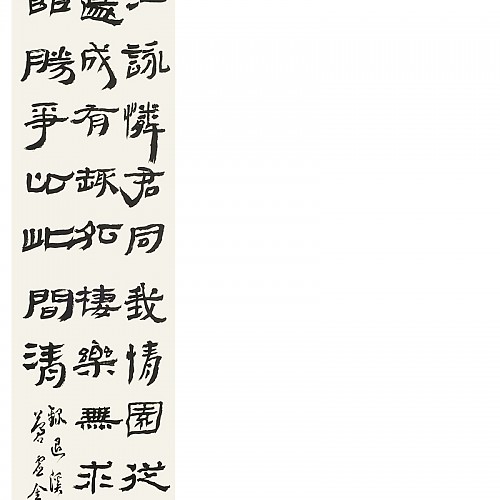 詠憐君同我情園從
成有趣孤棲樂無求
勝爭以此間清
錄退溪